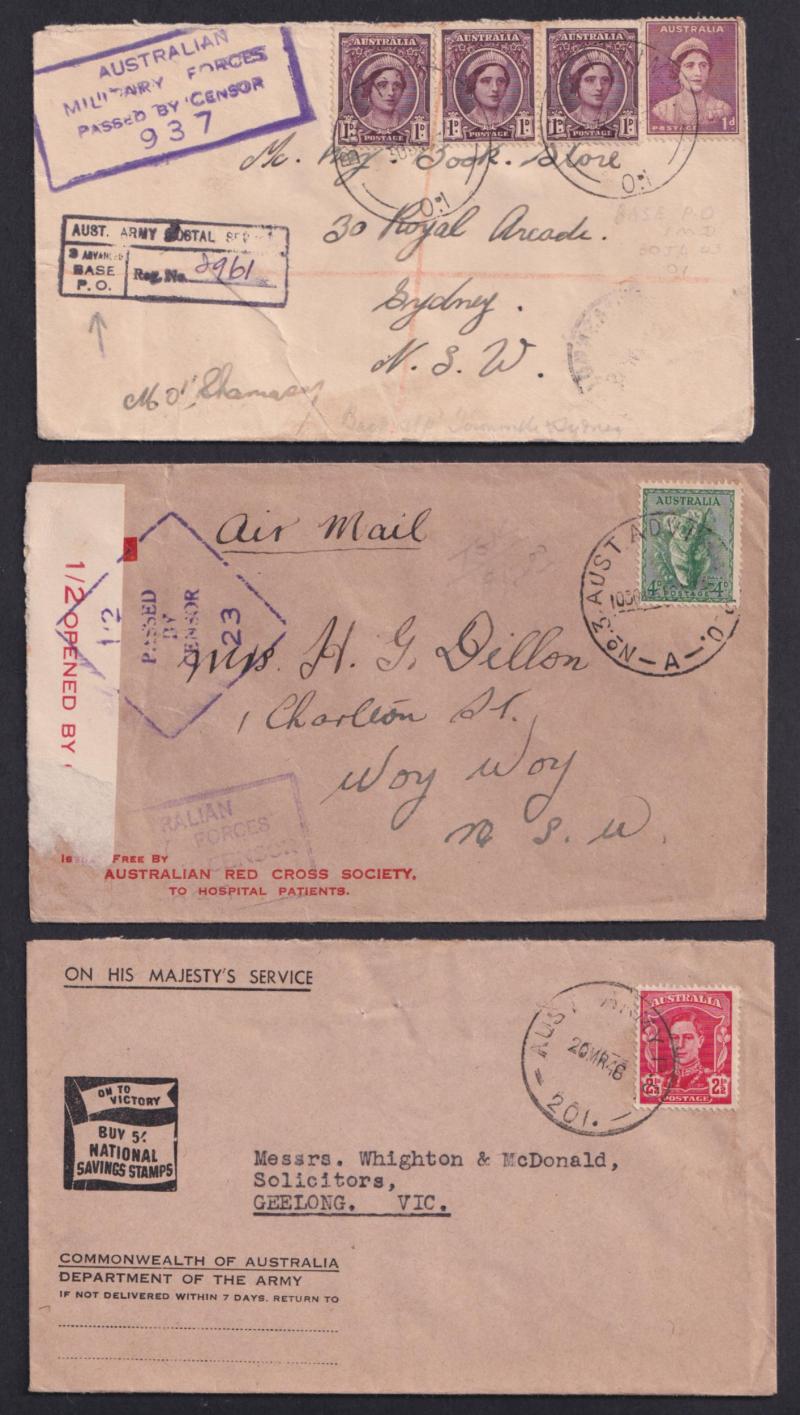 AUSTRALIAN
MILITARY FORCES
PASSED BY CENSOR
937
AUSTRALIA
1D 1D
POSTAGE
AUSTRALIA
1D 1D
POSTAGE
AUSTRALIA
1D 1D
POSTAGE
AUSTRALIA
POSTAGE 1d
0:1
0:1
Book Store
30 Royal Arcade.
Sydney.
N. S. W.
AUST. ARMY POSTAL
3 ADVANCED
BASE
P. O.
Reg. No. 2961
BASE P.O
Air Mail
AUSTRALIA
4D 4D
POSTAGE
No. 3. AUST
— A —
1/2 OPENED BY
12
PASSED
BY
CENSOR
23
Mrs. H. G. Dillon
1 Charlton St.
Woy Woy
N. S. W.
RALIAN
FORCES
CENSOR
FREE BY
AUSTRALIAN RED CROSS SOCIETY,
TO HOSPITAL PATIENTS.
ON HIS MAJESTY'S SERVICE
AUSTRALIA
2½D 2½D
POSTAGE
AUST ARMY
20MR46
201.
ON TO
VICTORY
BUY 5/-
NATIONAL
SAVINGS STAMPS
Messrs. Whighton & McDonald,
Solicitors,
GEELONG. VIC.
COMMONWEALTH OF AUSTRALIA
DEPARTMENT OF THE ARMY
IF NOT DELIVERED WITHIN 7 DAYS, RETURN TO